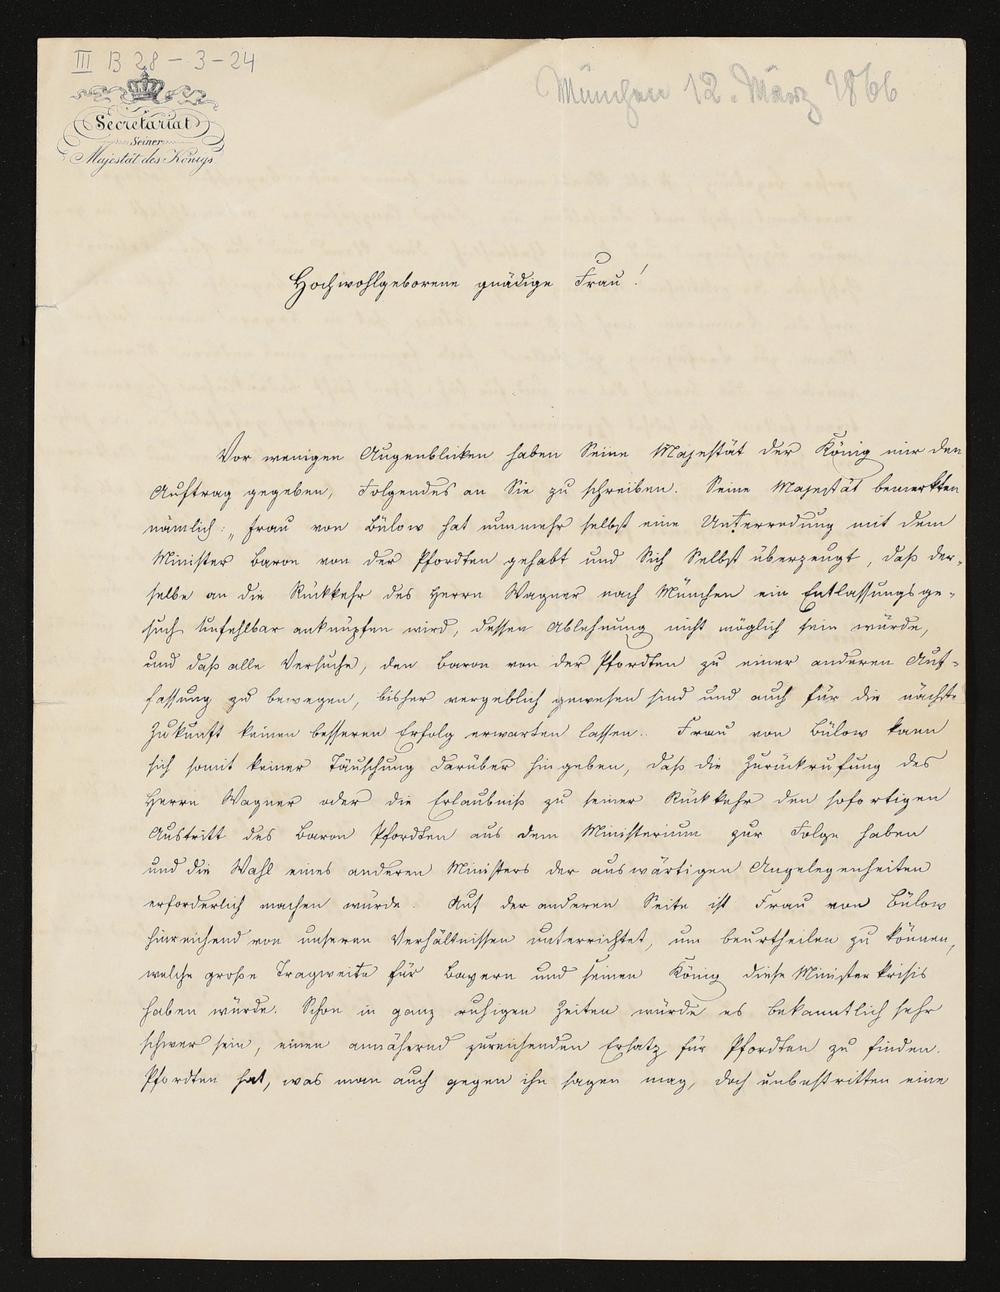 III B 28 - 3 - 24
München 12. März 1866
Secretariat
Seiner
Majestät des Königs
Hochwohlgeborene gnädige Frau!
Vor wenigen Augenblicken haben Seine Majestät der König mir den
Auftrag gegeben, Folgendes an Sie zu schreiben. Seine Majestät bemerkten
nämlich: „Frau von Bülow hat nunmehr selbst eine Unterredung mit dem
Minister Baron von der Pfordten gehabt und Sich Selbst überzeugt, daß der-
selbe an die Rückkehr des Herrn Wagner nach München ein Entlassungsge-
such unfehlbar anknüpfen wird, dessen Ablehnung nicht möglich sein würde,
und daß alle Versuche, den Baron von der Pfordten zu einer anderen Auf-
fassung zu bewegen, bisher vergeblich gewesen sind und auch für die nächste
Zukunft keinen besseren Erfolg erwarten lassen. Frau von Bülow kann
sich somit keiner Täuschung darüber hingeben, daß die Zurückrufung des
Herrn Wagner oder die Erlaubniß zu seiner Rückkehr den sofortigen
Austritt des Baron Pfordten aus dem Ministerium zur Folge haben
und die Wahl eines anderen Ministers der auswärtigen Angelegenheiten
erforderlich machen würde. Auf der anderen Seite ist Frau von Bülow
hinreichend von unseren Verhältnissen unterrichtet, um beurtheilen zu können,
welche große Tragweite für Bayern und seinen König diese Ministerkrisis
haben würde. Schon in ganz ruhigen Zeiten würde es bekanntlich sehr
schwer sein, einen annähernd zureichenden Ersatz für Pfordten zu finden.
Pfordten hat, was man auch gegen ihn sagen mag, doch unbestritten eine